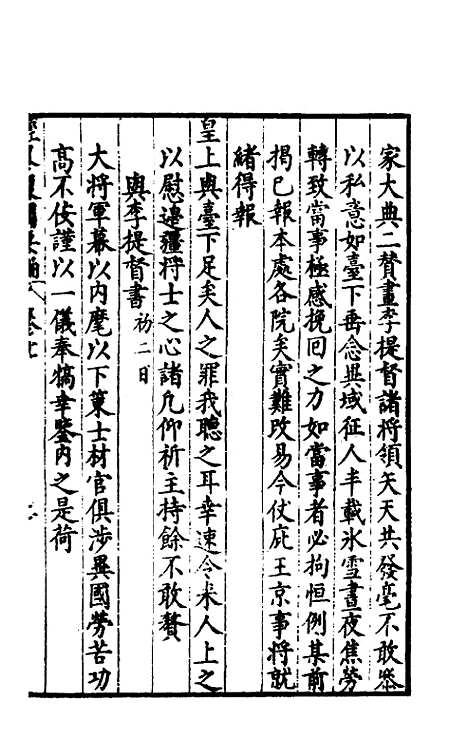 家大典二贊畫李提督諸將領矢天共發毫不敢叅
以私意如臺下垂念異域征人半載氷雪晝夜焦勞
轉致當事極感挽回之力如當事者必拘恒例某前
揭已報本處各院矣實難改易今仗庇王京事將就
緒得報
皇上與臺下足矣人之罪我聽之耳幸速令來人上之
以慰邊疆將士之心諸凡仰祈主持餘不敢贅
與李提督書初二日
大將軍幕以內麾以下策士材官俱涉異國勞苦功
高不佞謹以一儀奉犒幸鑒內之是荷
經畧復國要編 卷七